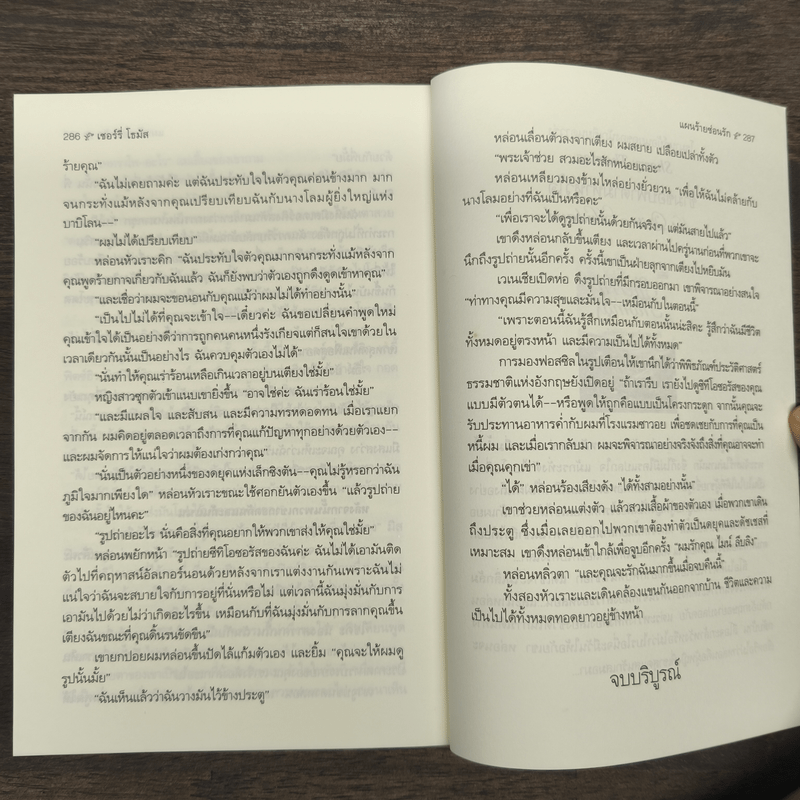 286 เชอร์รี่ โธมัส
ร้ายคุณ"
"ฉันไม่เคยถามค่ะ แต่ฉันประทับใจในตัวคุณค่อนข้างมาก มาก
จนกระทั่งแม้หลังจากคุณเปรียบเทียบฉันกับนางโลมผู้ยิ่งใหญ่แห่ง
บาบิโลน--"
"ผมไม่ได้เปรียบเทียบ"
หล่อนหัวเราะคิก "ฉันประทับใจตัวคุณมากจนกระทั่งแม้หลังจาก
คุณพูดร้ายกาจเกี่ยวกับฉันแล้ว ฉันก็ยังพบว่าตัวเองถูกดึงดูดเข้าหาคุณ"
"และเชื่อว่าผมจะขอนอนกับคุณแม้ว่าผมไม่ได้ทำอย่างนั้น"
"เป็นไปไม่ได้ที่คุณจะเข้าใจ--เดี๋ยวค่ะ ฉันขอเปลี่ยนคำพูดใหม่
คุณเข้าใจได้เป็นอย่างดีว่าการถูกคนคนหนึ่งรังเกียจแต่ก็สนใจเขาด้วยใน
เวลาเดียวกันนั้นเป็นอย่างไร ฉันควบคุมตัวเองไม่ได้"
"นั่นทำให้คุณเร่าร้อนเหลือเกินเวลาอยู่บนเตียงใช่มั้ย"
หญิงสาวซุกตัวเข้าแนบเขายิ่งขึ้น "อาจใช่ค่ะ ฉันเร่าร้อนใช่มั้ย"
"และมีแผลใจ และสับสน และมีความทรหดอดทน เมื่อเราแยก
จากกัน ผมคิดอยู่ตลอดเวลาถึงการที่คุณแก้ปัญหาทุกอย่างด้วยตัวเอง--
และผมจัดการให้แน่ใจว่าผมต้องเก่งกว่าคุณ"
"นั่นเป็นตัวอย่างหนึ่งของดยุคแห่งเล็กซิงตัน--คุณไม่รู้หรอกว่าฉัน
ภูมิใจมากเพียงใด" หล่อนหัวเราะขณะใช้ศอกยันตัวเองขึ้น "แล้วรูปถ่าย
ของฉันอยู่ไหนคะ"
"รูปถ่ายอะไร นั่นคือสิ่งที่คุณอยากให้พวกเขาส่งให้คุณใช่มั้ย"
หล่อนพยักหน้า "รูปถ่ายซีทิโอซอรัสของฉันค่ะ ฉันไม่ได้เอามันติด
ตัวไปที่คฤหาสน์อัลเกอร์นอนด้วยหลังจากเราแต่งงานกันเพราะฉันไม่
แน่ใจว่าฉันจะสบายใจกับการอยู่ที่นั่นหรือไม่ แต่เวลานี้ฉันมุ่งมั่นกับการ
เอามันไปด้วยไม่ว่าเกิดอะไรขึ้น เหมือนกับที่ฉันมุ่งมั่นกับการลากคุณขึ้น
เตียงฉันขณะที่คุณดิ้นรนขัดขืน"
เขายกปอยผมหล่อนขึ้นปัดไล้แก้มตัวเอง และยิ้ม "คุณจะให้ผมดู
รูปนั้นมั้ย"
"ฉันเห็นแล้วว่าฉันวางมันไว้ข้างประตู"
แผนร้ายซ่อนรัก 287
หล่อนเลื่อนตัวลงจากเตียง ผมสยาย เปลือยเปล่าทั้งตัว
"พระเจ้าช่วย สวมอะไรสักหน่อยเถอะ"
หล่อนเหลียวมองข้ามไหล่อย่างยั่วยวน "เพื่อให้ฉันไม่คล้ายกับ
นางโลมอย่างที่ฉันเป็นหรือคะ"
"เพื่อเราจะได้ดูรูปถ่ายนั้นด้วยกันจริงๆ แต่มันสายไปแล้ว"
เขาดึงหล่อนกลับขึ้นเตียง และเวลาผ่านไปครู่นานก่อนที่พวกเขาจะ
นึกถึงรูปถ่ายนั้นอีกครั้ง ครั้งนี้เขาเป็นฝ่ายลุกจากเตียงไปหยิบมัน
เวเนเชียเปิดห่อ ดึงรูปถ่ายที่มีกรอบออกมา เขาพิจารณาอย่างสนใจ
"ท่าทางคุณมีความสุขและมั่นใจ--เหมือนกับในตอนนี้"
"เพราะตอนนี้ฉันรู้สึกเหมือนกับตอนนั้นน่ะสิคะ รู้สึกว่าฉันมีชีวิต
ทั้งหมดอยู่ตรงหน้า และมีความเป็นไปได้ทั้งหมด"
การมองฟอสซิลในรูปเตือนให้เขานึกได้ว่าพิพิธภัณฑ์ประวัติศาสตร์
ธรรมชาติแห่งอังกฤษยังเปิดอยู่ "ถ้าเรารีบ เรายังไปดูซีทิโอซอรัสของคุณ
แบบมีตัวตนได้--หรือพูดให้ถูกคือแบบเป็นโครงกระดูก จากนั้นคุณจะ
รับประทานอาหารค่ำกับผมที่โรงแรมซาวอย เพื่อชดเชยกับการที่คุณเป็น
หนี้ผม และเมื่อเรากลับมา ผมจะพิจารณาอย่างจริงจังถึงสิ่งที่คุณอาจจะทำ
เมื่อคุณคุกเข่า"
"ได้" หล่อนร้องเสียงดัง "ได้ทั้งสามอย่างนั้น"
เขาช่วยหล่อนแต่งตัว แล้วสวมเสื้อผ้าของตัวเอง เมื่อพวกเขาเดิน
ถึงประตู ซึ่งเมื่อเลยออกไปพวกเขาต้องทำตัวเป็นดยุคและดัชเชสที่
เหมาะสม เขาดึงหล่อนเข้าใกล้เพื่อจูบอีกครั้ง "ผมรักคุณ ไมน์ ลีบลิง"
หล่อนหลิ่วตา "และคุณจะรักฉันมากขึ้นเมื่อจบคืนนี้"
ทั้งสองหัวเราะและเดินคล้องแขนกันออกจากบ้าน ชีวิตและความ
เป็นไปได้ทั้งหมดทอดยาวอยู่ข้างหน้า
จบบริบูรณ์